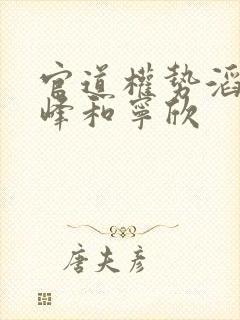 官道權勢滔
峰和寧欣
唐夫彦